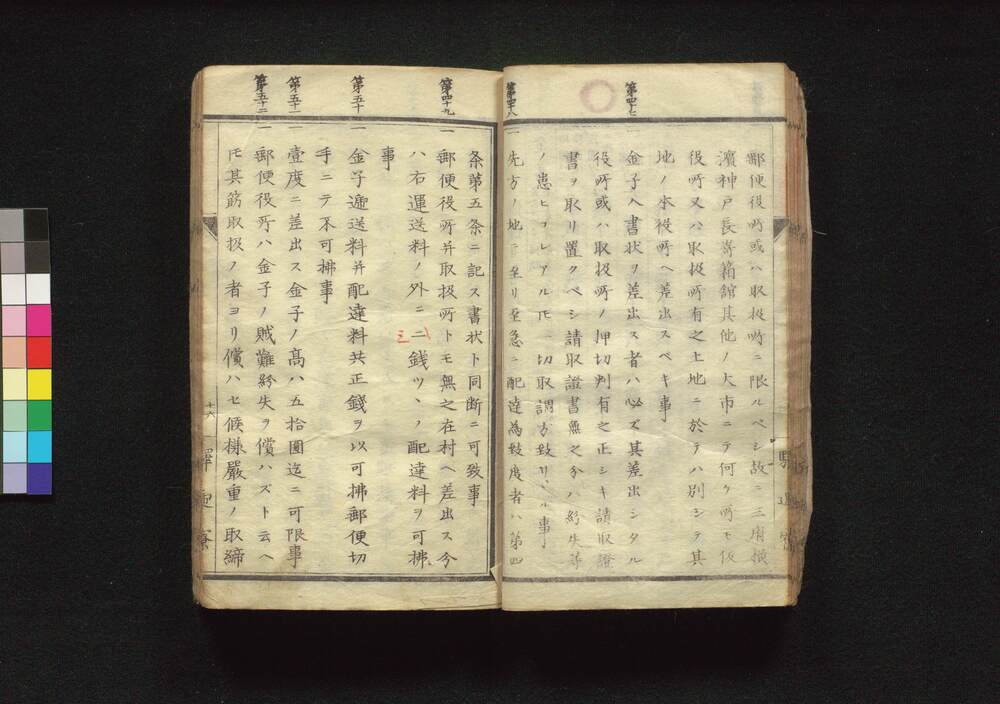 郵便役所或ハ取扱所ニ限ルベシ故ニ三府横
濱神戸長崎箱館其他ノ大市ニテ何ケ所モ仮
役所又ハ取扱所有之土地ニ於テハ別シテ其
地ノ本役所ヘ差出スベキ事
第四十七
一金子入書状ヲ差出ス者ハ必ズ其差出シタル
役所或ハ取扱所ノ押切判有之正シキ請取證
書ヲ取リ置クベシ請取證書無之分ハ紛失等
ノ患ヒコレアル氏一切取調方致リ事
第四十八
一先方ノ地ニ至リ至急ニ配達為致度者ハ第四
条第五条ニ記ス書状ト同断ニ可致事
第四十九
一郵便役所并取扱所トモ無之在村ヘ差出ス分
ハ右運送料ノ外ニ二銭ヅヽノ配達料ヲ可拂
三
事
第五十
一金子逓送料并配達料共正錢ヲ以可拂郵便切
手ニテ不可拂事
第五十一
一壹度ニ差出ス金子ノ髙ハ五拾圓迄ニ可限事
第五十二
一郵便役所ハ金子ノ賊難紛失ヲ償ハズト云ヘ
氏其筋取扱ノ者ヨリ償ハセ候様嚴重ノ取締
十六
驛逓寮